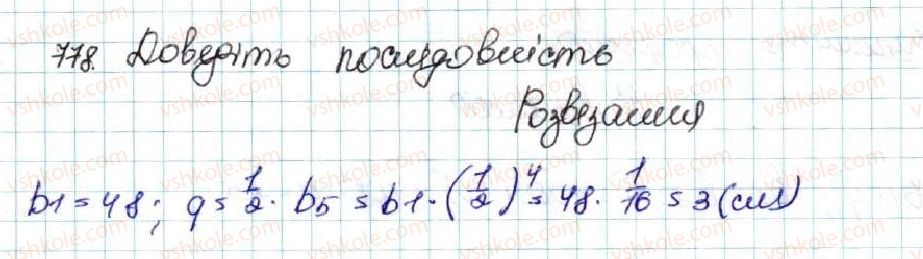 778. Доведіть послідовність
Розвезання
b1 = 48; q = 1/2. b5 = b1 · (1/2)^4 = 48 · 1/16 = 3 (см)
vshkole.com